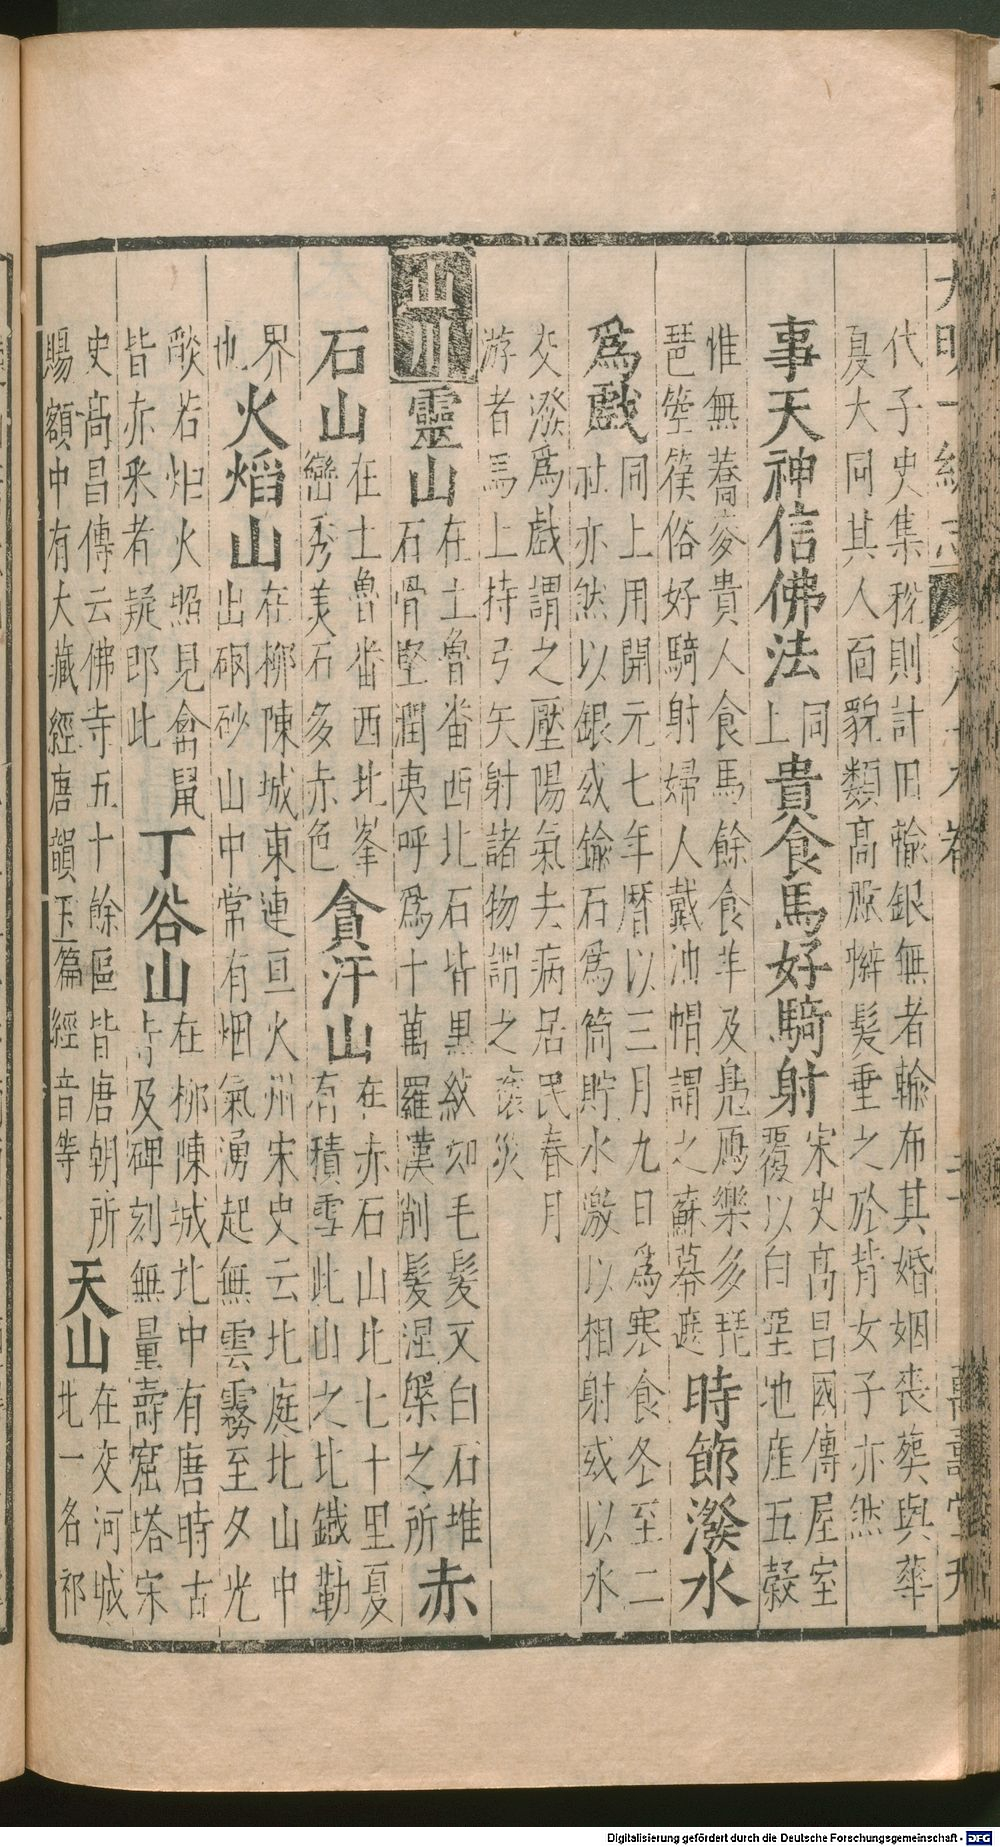 大明一統志 卷 萬壽堂刊
代子史集稅則計田輸銀無者輸布其婚姻喪葬與華
夏大同其人面貌類高麗辮髮垂之於背女子亦然
事天神信佛法 同上 貴食馬好騎射 宋史高昌國傳屋室
覆以白堊地産五穀
惟無蕎麥貴人食馬餘食羊及鳧鴈樂多琵
琶箜篌俗好騎射婦人戴油帽謂之蘇幕遮 時節潑水
爲戲 同上用開元七年曆以三月九日爲寒食冬至二
社亦然以銀或鍮石爲筒貯水激以相射或以水
交潑爲戲謂之壓陽氣去病居民春月
游者馬上持弓矢射諸物謂之禳災
山川 靈山 在土魯番西北石皆黑紋如毛髮又白石堆
石骨堅潤夷呼爲十萬羅漢削髮涅槃之所 赤
石山 在土魯番西北峯
巒秀美石多赤色 貪汗山 在赤石山北七十里夏
有積雪此山之北鐵勒
界也 火熖山 在柳陳城東連亘火州宋史云北庭北山中
出硇砂山中常有烟氣湧起無雲霧至夕光
燄若炬火照見禽鼠
皆赤采者疑即此 丁谷山 在柳陳城北中有唐時古
寺及碑刻無量壽窟塔宋
史高昌傳云佛寺五十餘區皆唐朝所
賜額中有大藏經唐韻玉篇經音等 天山 在交河城
北一名祁
Digitalisierung gefördert durch die Deutsche Forschungsgemeinschaft - DFG